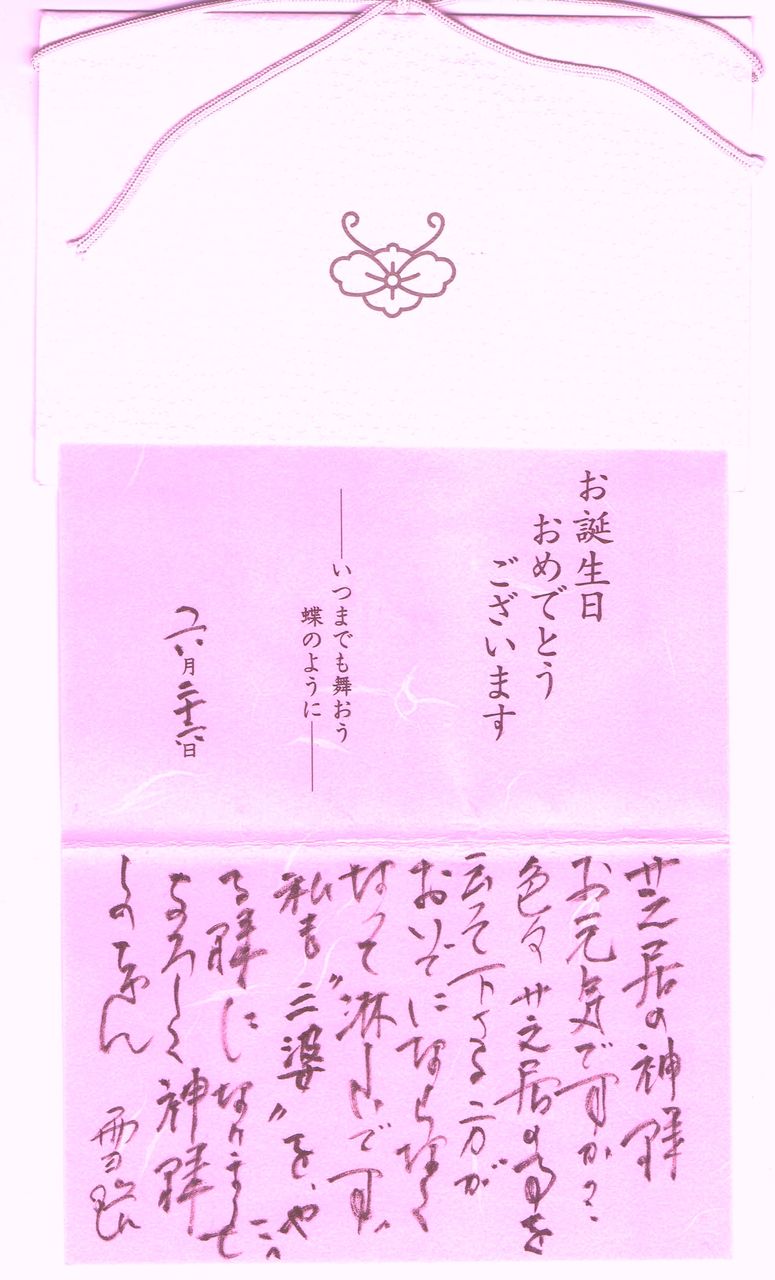 お誕生日
おめでとう
ございます
――いつまでも舞おう
蝶のように――
月二十六日
芝居の神様
お元気ですか?
色々芝居の事を
云って下さる方が
おいでにならなく
なって淋しいです。
私も"三婆"をや
る様になりまして
よろしく神様
雪路